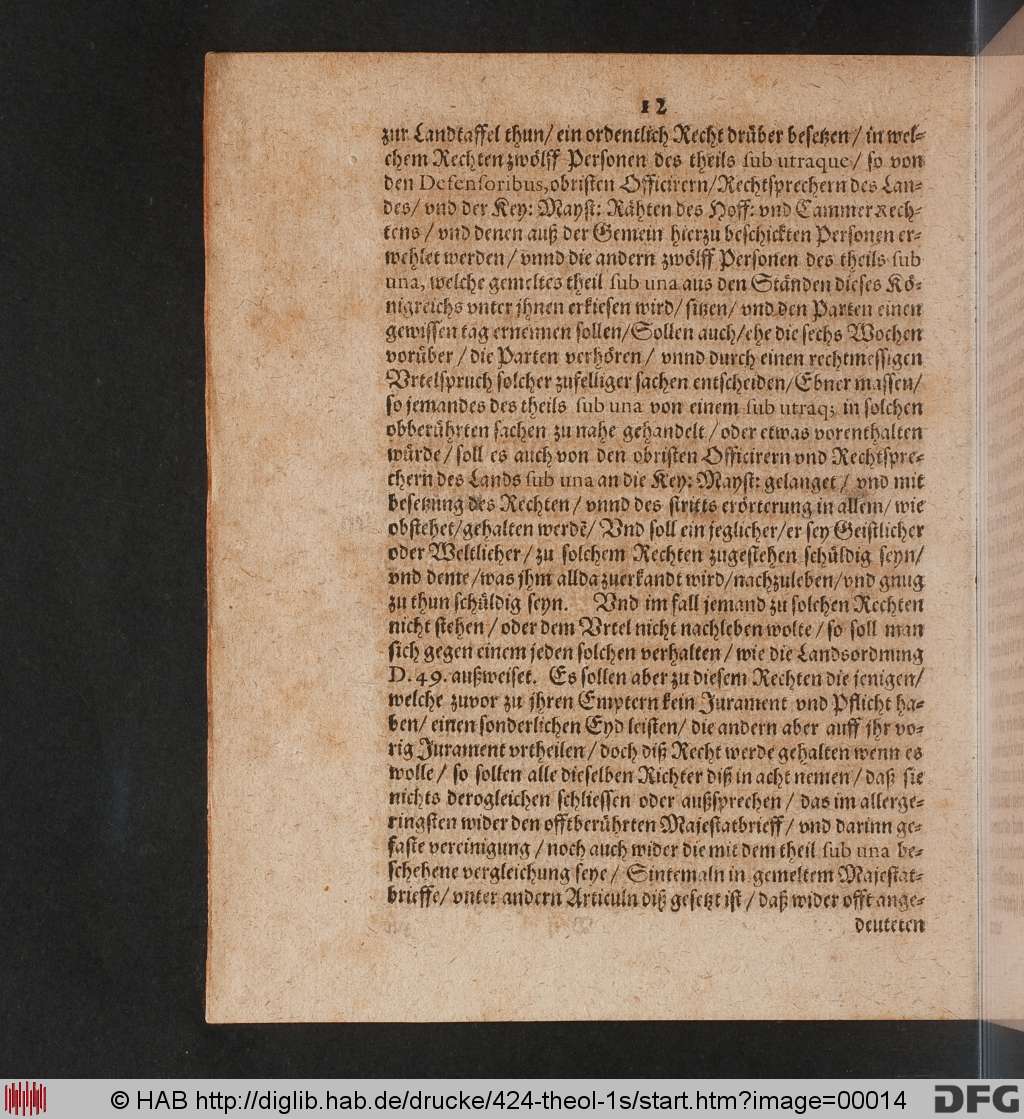 12
zur Landtaffel thun/ ein ordentlich Recht drüber besetzen/ in wel⸗
chem Rechten zwölff Personen des theils sub utraque/ so von
den Defensoribus, obristen Officirern/ Rechtsprechern des Lan⸗
des/ vnd der Key: Mayst: Rähten des Hoff: vnd Cammer Rech⸗
tens/ vnd denen auß der Gemein hierzu beschickten Personen er⸗
wehlet werden/ vnnd die andern zwölff Personen des theils sub
una, welche gemeltes theil sub una aus den Ständen dieses Kö⸗
nigreichs vnter jhnen erkiesen wird/ sitzen/ vnd den Parten einen
gewissen tag ernennen sollen/ Sollen auch/ ehe die sechs Wochen
vorüber/ die Parten verhören/ vnnd durch einen rechtmessigen
Vrtelspruch solcher zufelliger sachen entscheiden/ Ebner massen/
so jemandes des theils sub una von einem sub utraq; in solchen
obberührten sachen zu nahe gehandelt/ oder etwas vorenthalten
würde/ soll es auch von den obristen Officirern vnd Rechtspre⸗
chern des Lands sub una an die Key: Mayst: gelanget/ vnd mit
besetzung des Rechten/ vnnd des stritts erörterung in allem/ wie
obstehet/ gehalten werdē/ Vnd soll ein jeglicher/ er sey Geistlicher
oder Weltlicher/ zu solchem Rechten zugestehen schüldig seyn/
vnd deme/ was jhm allda zuerkandt wird/ nachzuleben/ vnd gnug
zu thun schüldig seyn. Vnd im fall jemand zu solchen Rechten
nicht stehen/ oder dem Vrtel nicht nachleben wolte/ so soll man
sich gegen einem jeden solchen verhalten/ wie die Landsordnung
D. 49. außweiset. Es sollen aber zu diesem Rechten die jenigen/
welche zuvor zu jhren Emptern kein Jurament vnd Pflicht ha⸗
ben/ einen sonderlichen Eyd leisten/ die andern aber auff jhr vo⸗
rig Jurament vrtheilen/ doch diß Recht werde gehalten wenn es
wolle/ so sollen alle dieselben Richter diß in acht nemen/ daß sie
nichts derogleichen schliessen oder außsprechen/ das im allerge⸗
ringsten wider den offtberührten Majestatbrieff/ vnd darinn ge⸗
faste vereinigung/ noch auch wider die mit dem theil sub una be⸗
schehene vergleichung seye/ Sintemaln in gemeltem Majestat⸗
brieffe/ vnter andern Articuln diß gesetzt ist/ daß wider offt ange⸗
deuteten
© HAB http://diglib.hab.de/drucke/424-theol-1s/start.htm?image=00014
DFG